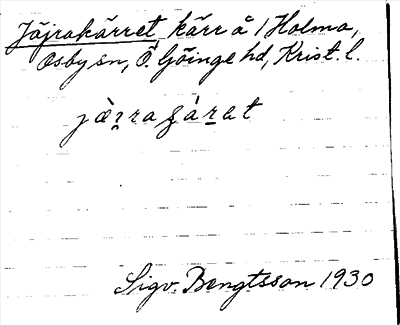 Jäjrakärret kärr å 1 Holma,
Osby sn, Ö. Göinge hd, Krist. l.
Sigv. Bengtsson 1930